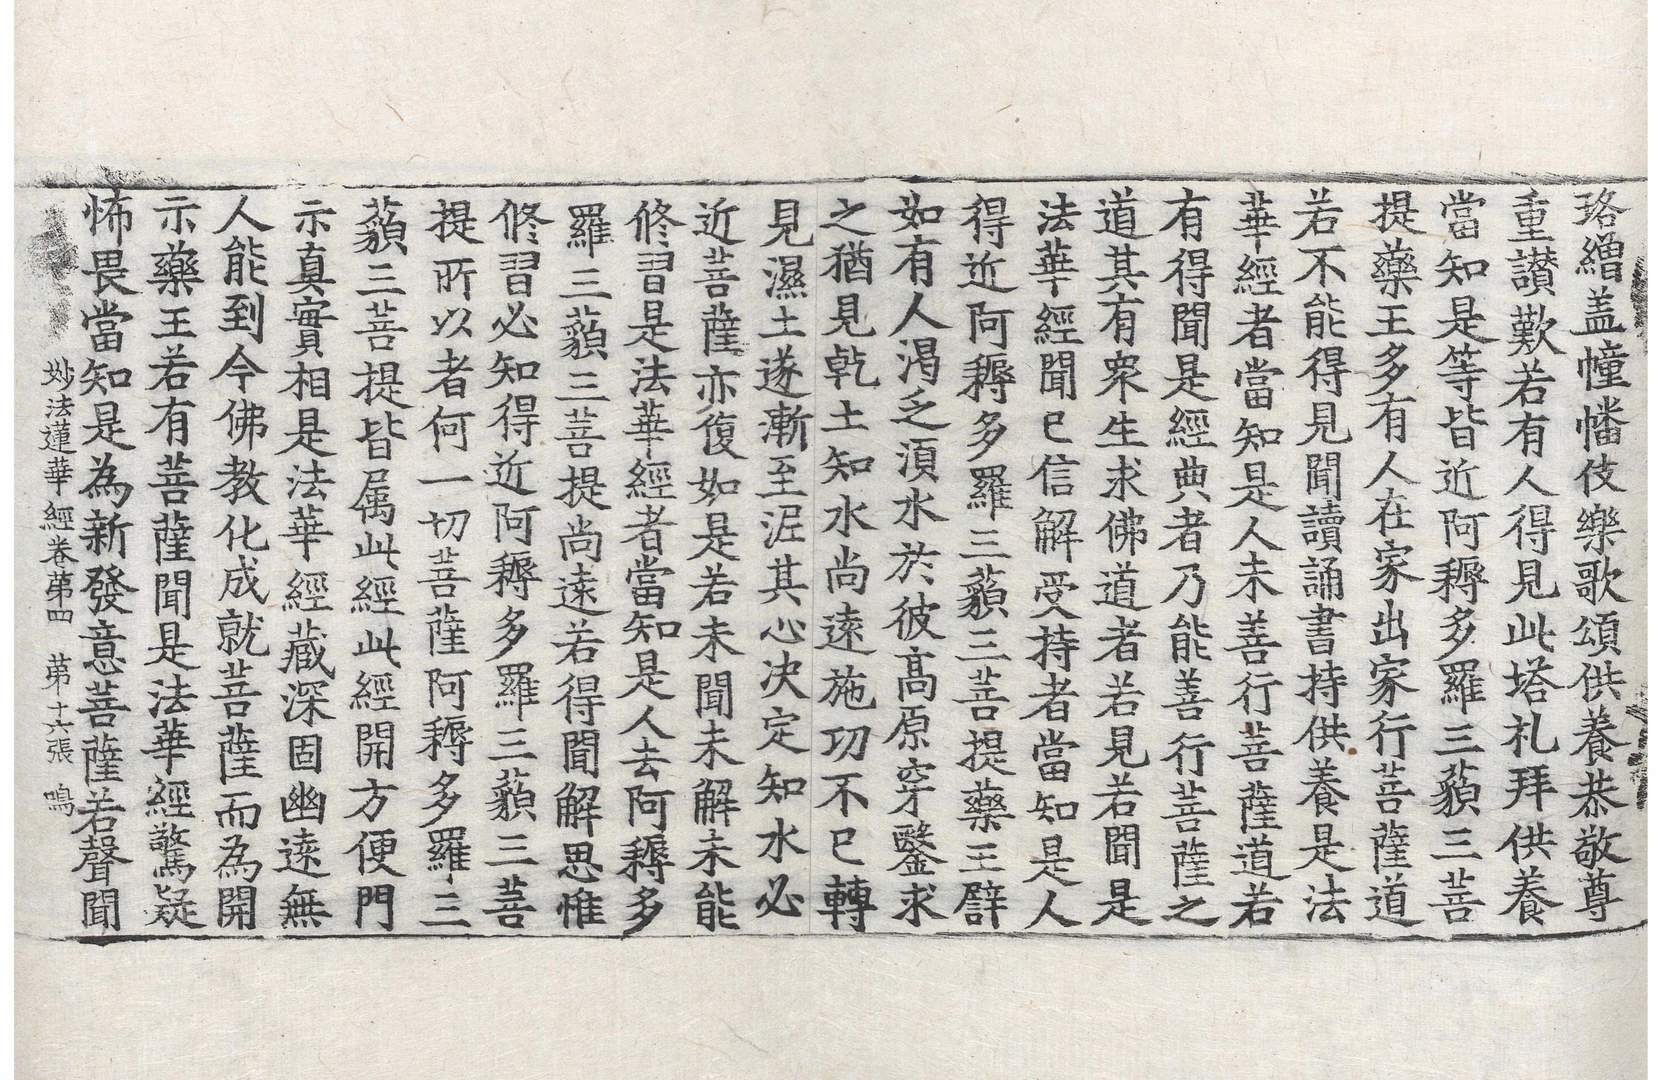 珞繒盖幢幡伎樂歌頌供養恭敬尊
重讃歎若有人得見此塔礼拜供養
當知是等皆近阿耨多羅三藐三菩
提藥王多有人在家出家行菩薩道
若不能得見聞讀誦書持供養是法
華經者當知是人未善行菩薩道若
有得聞是經典者乃能善行菩薩之
道其有衆生求佛道者若見若聞是
法華經聞已信解受持者當知是人
得近阿耨多羅三藐三菩提藥王譬
如有人渴乏湏水於彼髙原穿鑿求
之猶見乾土知水尚遠施功不已轉
見濕土遂漸至泥其心决定知水必
近菩薩亦復如是若未聞未解未能
修習是法華經者當知是人去阿耨多
羅三藐三菩提尚遠若得聞解思惟
修習必知得近阿耨多羅三藐三菩
提所以者何一切菩薩阿耨多羅三
藐三菩提皆属此經此經開方便門
示真實相是法華經藏深固幽遠無
人能到今佛教化成就菩薩而為開
示藥王若有菩薩聞是法華經驚疑
怖畏當知是為新發意菩薩若聲聞
妙法蓮華經卷第四 第十六張 鳴